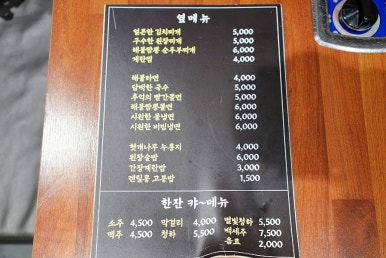 옆메뉴
얼큰한 김치찌개 5,000
구수한 된장찌개 5,000
해물짬뽕 순두부찌개 6,000
계란찜 4,000
해물라면 5,000
담백한 국수 5,000
추억의 빨간쫄면 5,000
해물짬뽕쫄면 6,000
시원한 물냉면 6,000
시원한 비빔냉면 6,000
헛개나무 누룽지 4,000
된장술밥 6,000
간장계란밥 3,000
고봉밥 1,500
한잔 캬~메뉴
소주 4,500 막걸리 4,000 별빛청하 5,500
맥주 4,500 청하 5,500 백세주 7,500
음료 2,000